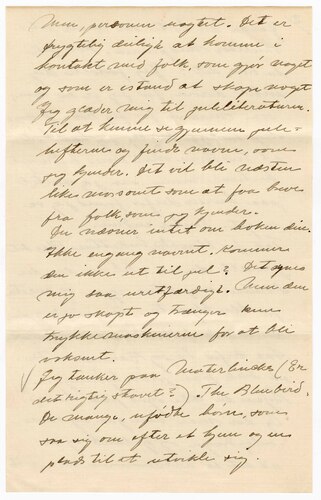 Men, personen nogtet. Det er
frygtelig deiligh at komme i
kontakt med folk, som gjør noget
og som er istand at skape noget
Jeg glæder mig til juleliteraturen.
Til at kunne se gjennem jule-
hefterne og finde navne, som
jeg kjender. Det vil bli næsten
like morsomt som at faa breve
fra folk, som jeg kjender.
Du nævner intet om boken din.
Ikke engang navnet. Kommer
den ikke ut til jul? Det synes
mig saa uretfærdigt. Men den
er jo skapt og trænger kun
trykkemaskinerne for at bli
voksent.
Jeg tænker paa Materlincks (Er
det rigtig stavet?) The Bluebird.
De mange, ufødte børn, som
saa sig om efter et hjem og en
plads til at utvikle sig.